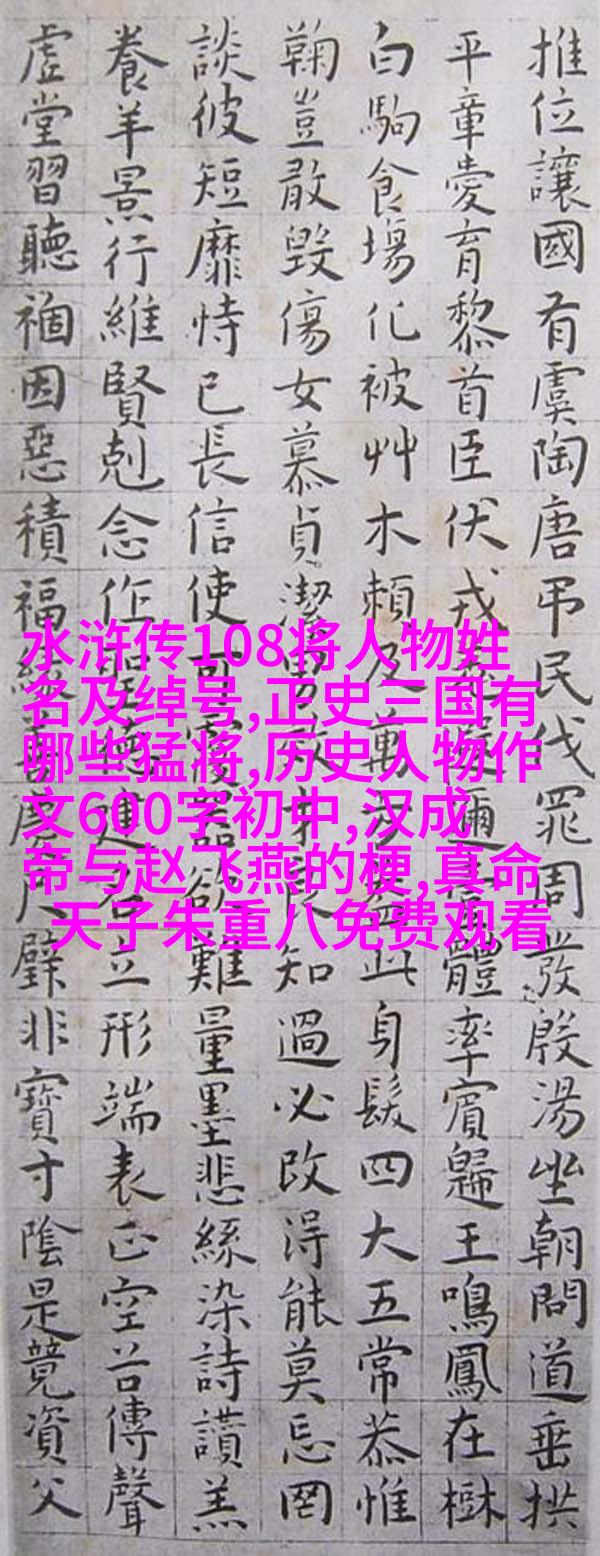 推位讓國有虞陶唐弔民伐罪周發殷湯坐朝問道垂拱
平章愛育黎首臣伏戎羌遐邇壹體率賓歸王鳴鳳在樹
白駒食場化被艸木賴及萬方蓋此身髮四大五常恭惟
鞠豈敢毀傷女慕貞潔男效才良知過必改得能莫忘罔
談彼短靡恃己長信使可覆器欲難量墨悲絲染詩讚羔
養羊景行維賢剋念作聖德建名立形端表正空谷傳聲
虛堂習聽禍因惡積福緣善慶尺璧非寶寸陰是競資父
水浒传108将人物姓
名及绰号,正史三国有
哪些猛将,历史人物作
文600字初中,汉成
帝与赵飞燕的梗,真命
天子朱重八免费观看